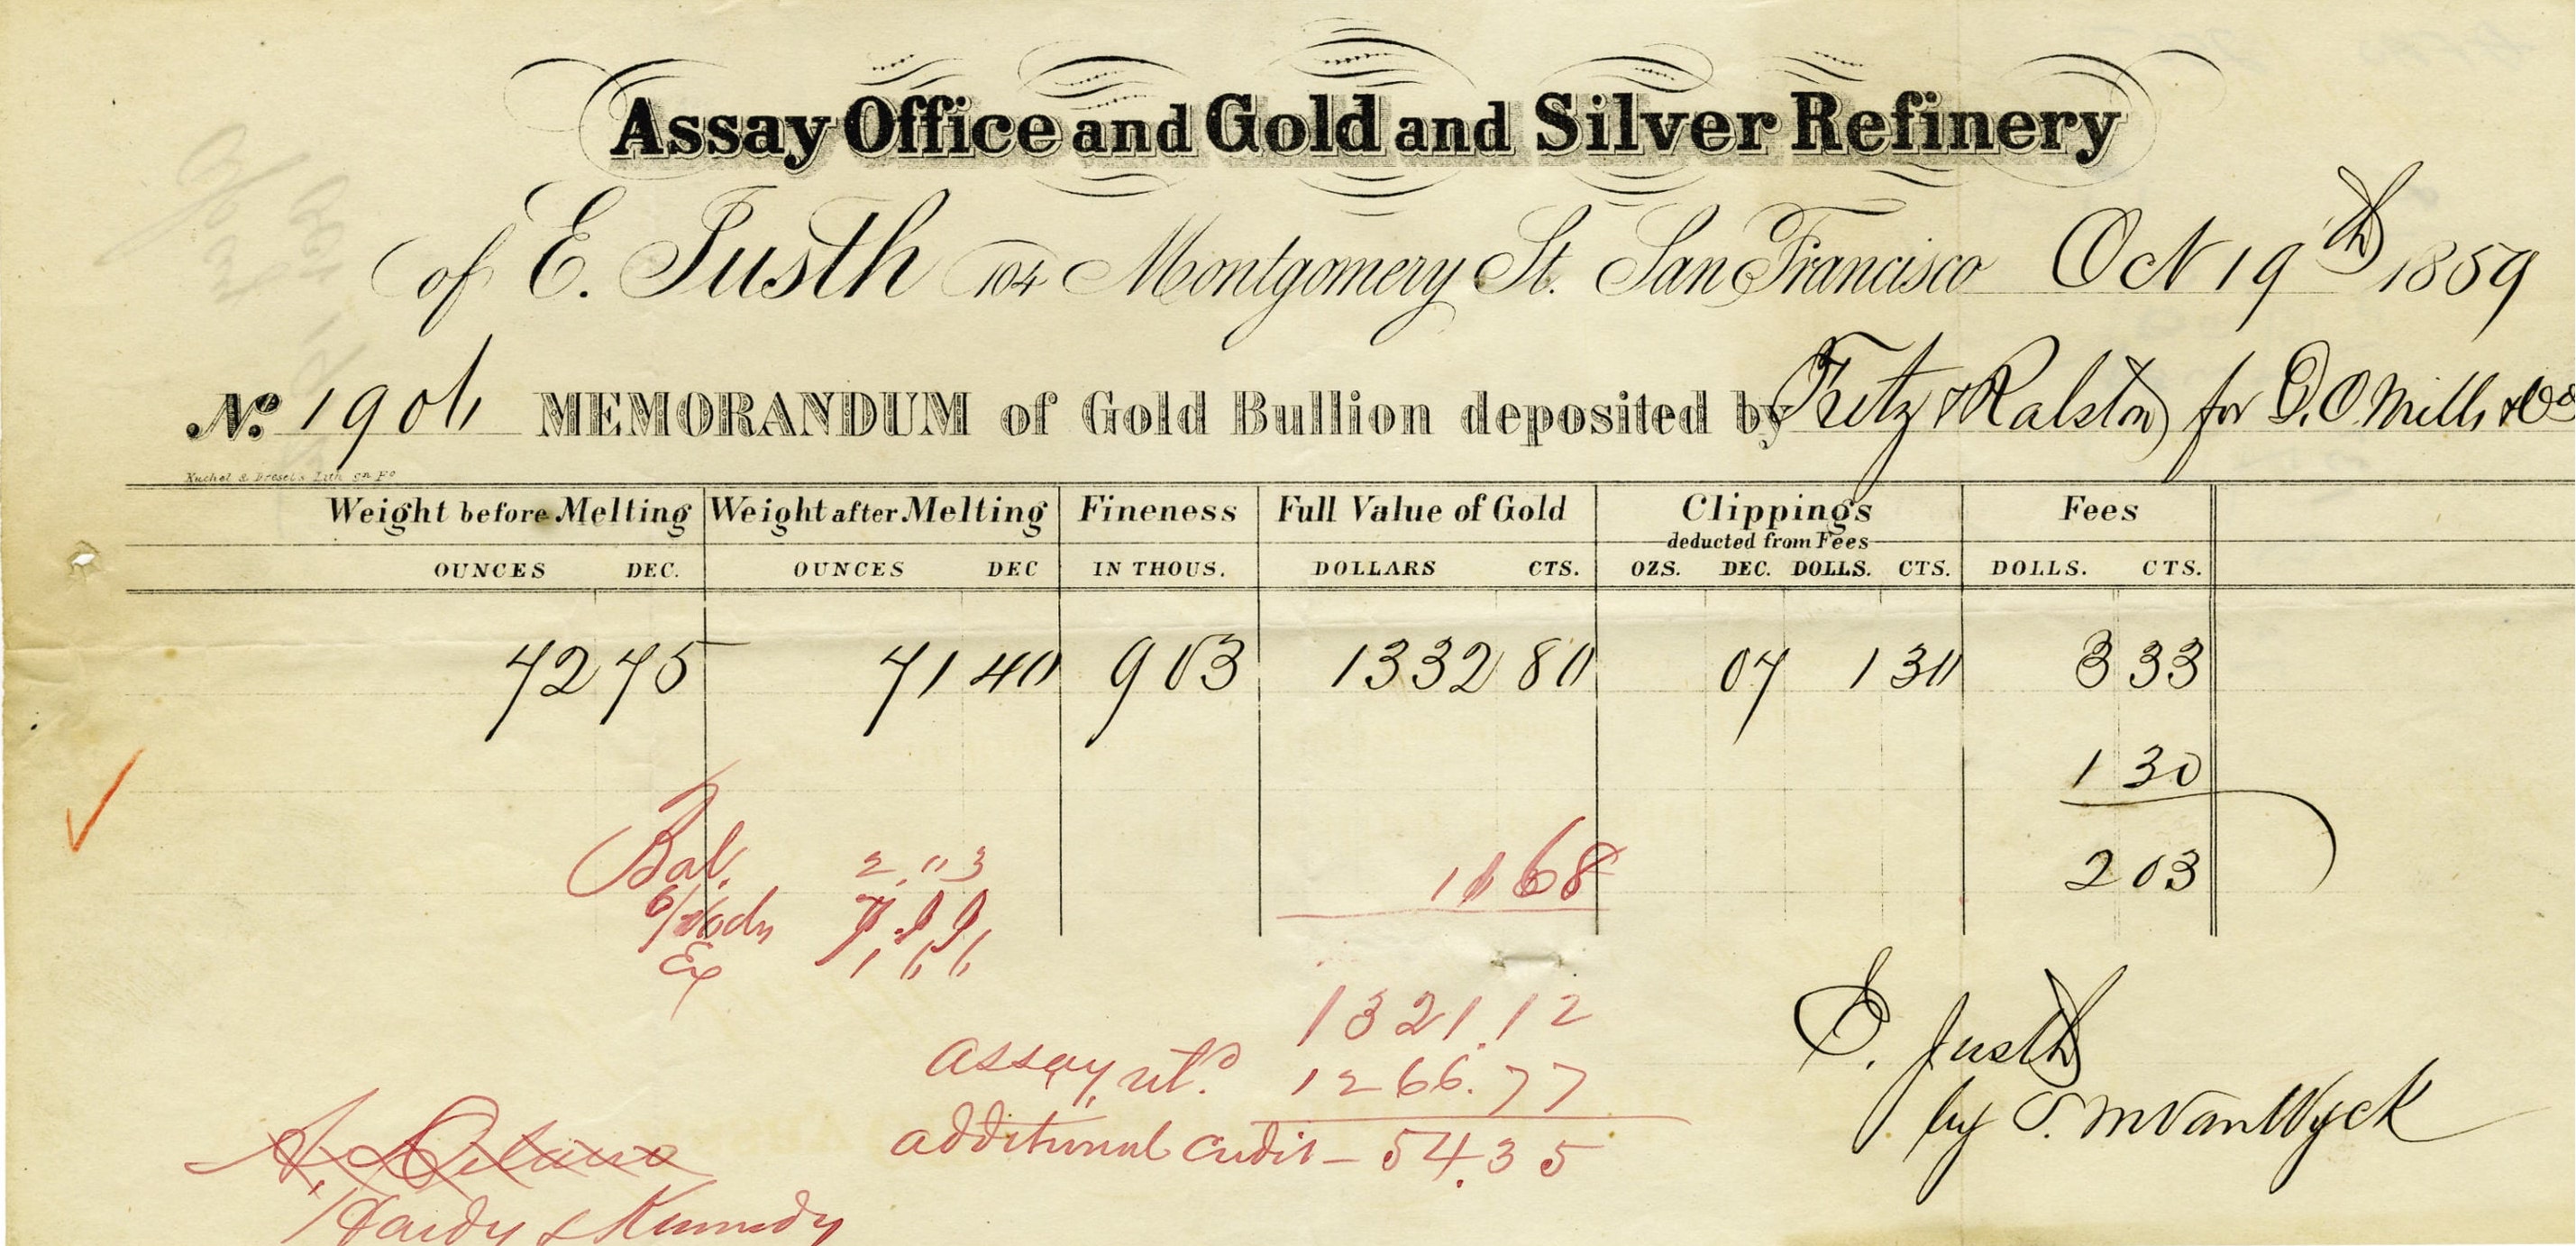 Assay Office and Gold and Silver Refinery
of E. Justh 104 Montgomery St. San Francisco Oct 19th 1859
No. 1904 MEMORANDUM of Gold Bullion deposited by Fretz & Ralston for D.O. Mills & Co
Kuchel & Dresel's Lith Sn Fo
Weight before Melting Weight after Melting Fineness Full Value of Gold Clippings Fees
deducted from Fees
OUNCES DEC. OUNCES DEC IN THOUS. DOLLARS CTS. OZS. DEC. DOLLS. CTS. DOLLS. CTS.
72 75 71 40 903 1332 80 07 1 30 3 33
1 30
Bal. 2.03 11 68 2 03
Ex 1 66
1321.12
E. Justh
Assay rtd 1266.77
by T. M Van Wyck
additional credit - 54.35
Hardy & Kennedy